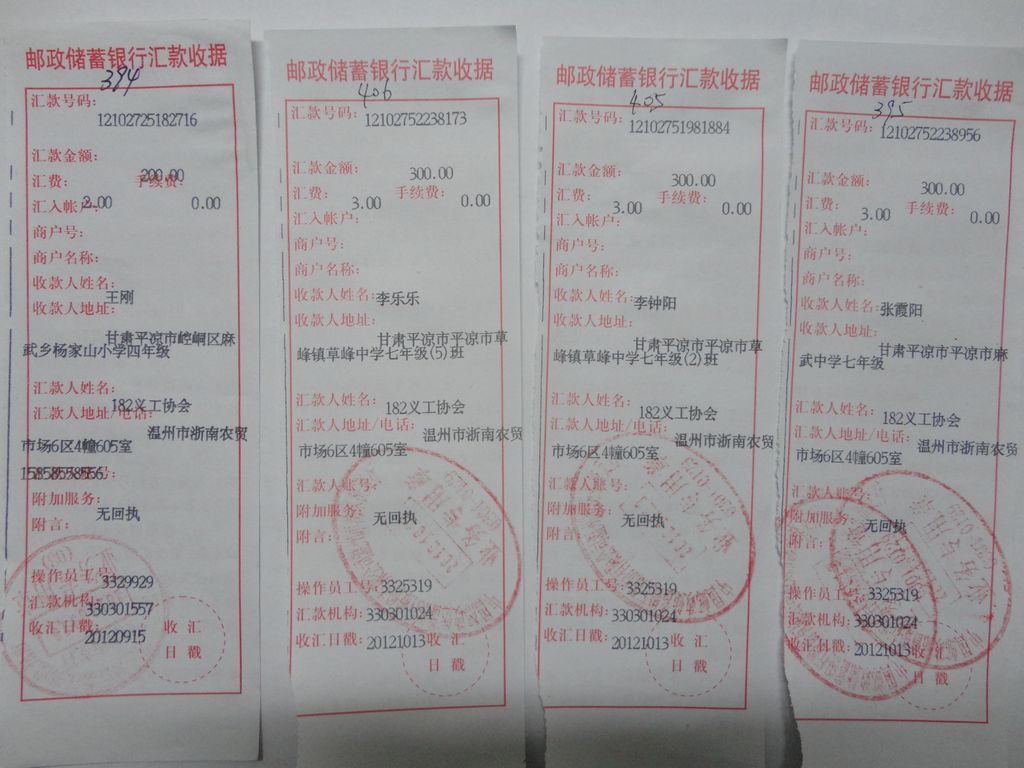 邮政储蓄银行汇款收据
394
汇款号码:
12102725182716
汇款金额:
200.00
汇费:
手续费:
2.00
0.00
汇入帐户:
商户号:
商户名称:
收款人姓名:
王刚
收款人地址:
甘肃平凉市崆峒区麻
武乡杨家山小学四年级
汇款人姓名:
182义工协会
汇款人地址/电话:
温州市浙南农贸
市场6区4幢605室
附加服务:
无回执
附言:
操作员工号:3329929
汇款机构:330301557
收汇日戳:20120915
收汇
日戳
邮政储蓄银行汇款收据
406
汇款号码:12102752238173
汇款金额:
300.00
汇费:
3.00
手续费:
0.00
汇入帐户:
商户号:
商户名称:
收款人姓名:李乐乐
收款人地址:
甘肃平凉市平凉市草
峰镇草峰中学七年级(5)班
汇款人姓名:
182义工协会
汇款人地址/电话:
温州市浙南农贸
市场6区4幢605室
汇款人账号:
附加服务:
无回执
附言:
操作员工号:3325319
汇款机构:330301024
收汇日戳:20121013
收汇
日戳
邮政储蓄银行汇款收据
405
汇款号码:12102751981884
汇款金额:
300.00
汇费:
3.00
手续费:
0.00
汇入帐户:
商户号:
商户名称:
收款人姓名:李钟阳
收款人地址:
甘肃平凉市平凉市草
峰镇草峰中学七年级(2)班
汇款人姓名:
182义工协会
汇款人地址/电话:
温州市浙南农贸
市场6区4幢605室
汇款人账号:
附加服务:
无回执
附言:
操作员工号:3325319
汇款机构:330301024
收汇日戳:20121013
收汇
日戳
邮政储蓄银行汇款收据
395
汇款号码:12102752238956
汇款金额:
300.00
汇费:
3.00
手续费:
0.00
汇入帐户:
商户号:
商户名称:
收款人姓名:张霞阳
收款人地址:
甘肃平凉市平凉市麻
武中学七年级
汇款人姓名:
182义工协会
汇款人地址/电话:
温州市浙南农贸
市场6区4幢605室
汇款人账号:
附加服务:
无回执
附言:
操作员工号:3325319
汇款机构:330301024
收汇日戳:20121013
收汇
日戳